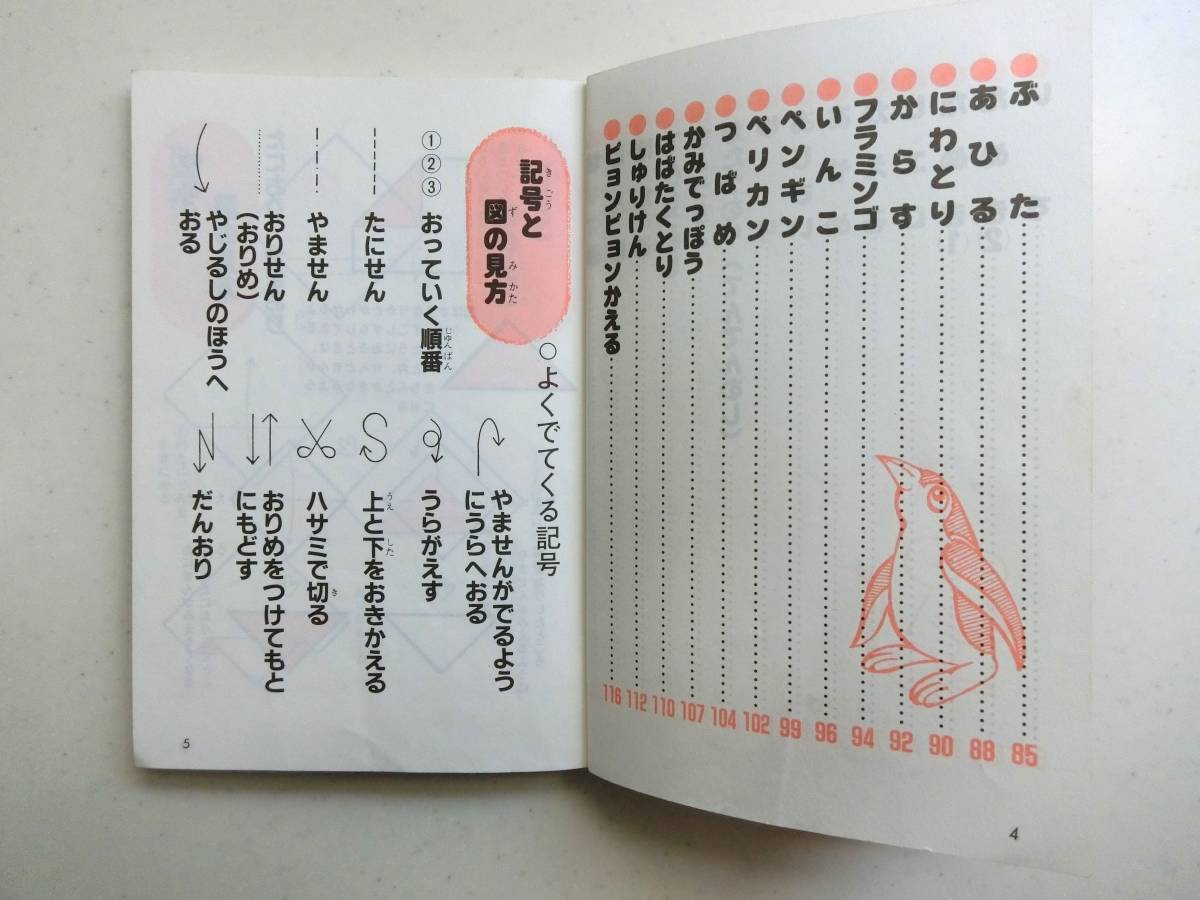 ぶた 85
あひる 88
にわとり 90
からす 92
フラミンゴ 94
いんこ 96
ペンギン 99
ペリカン 102
つばめ 104
かみでっぽう 107
はばたくとり 110
しゅりけん 112
ピョンピョンかえる 116
4
記号と
図の見方
きごう
ず みかた
○よくでてくる記号
①②③ おっていく順番
じゅんばん
たにせん
やません
おりせん
(おりめ)
やじるしのほうへ
おる
やませんがでるよう
にうらへおる
うらがえす
上と下をおきかえる
うえ した
ハサミで切る
き
おりめをつけてもと
にもどす
だんおり
5